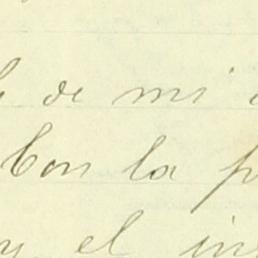 de mi
Con la
y el